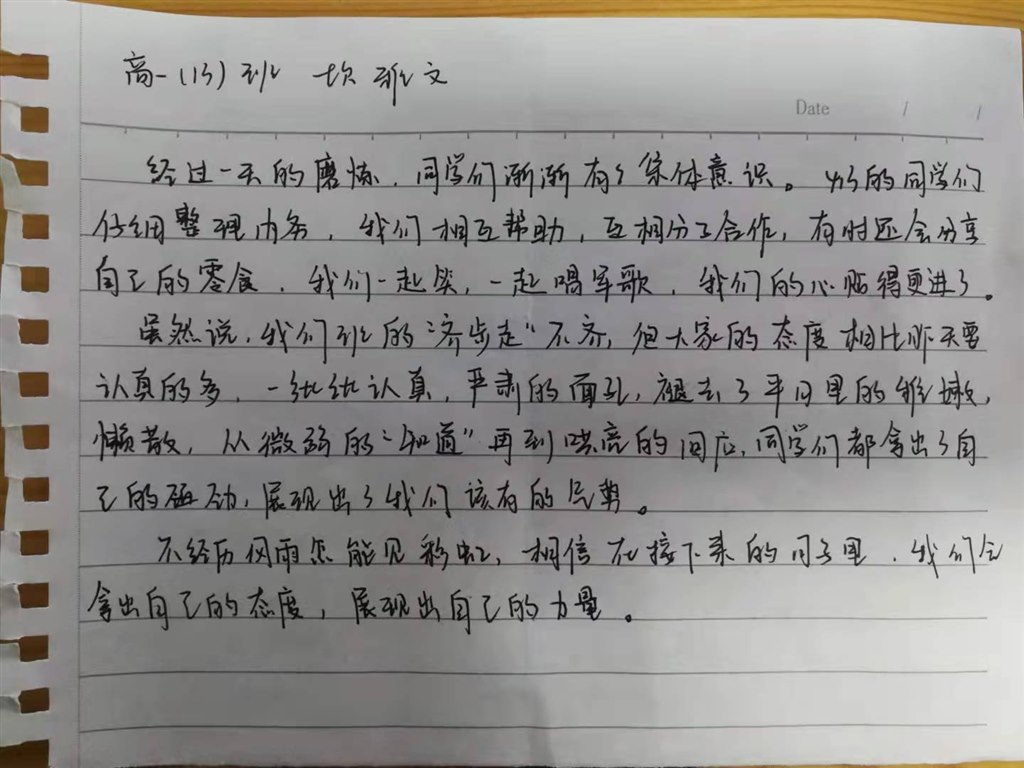 高一(13)班 文
Date / /
经过一天的磨炼,同学们渐渐有了集体意识。的同学们
仔细整理内务,我们相互帮助,互相分工合作,有时还会分享
自己的零食,我们一起笑,一起唱军歌,我们的心贴得更进了。
虽然说,我们班的“齐步走”不齐,但大家的态度相比昨天要
认真的多,一张张认真,严肃的面孔,褪去了平日里的稚嫩,
懒散,从微弱的“知道”再到洪亮的回应,同学们都拿出了自
己的干劲,展现出了我们该有的气势。
不经历风雨怎能见彩虹,相信在接下来的日子里,我们会
拿出自己的态度,展现出自己的力量。